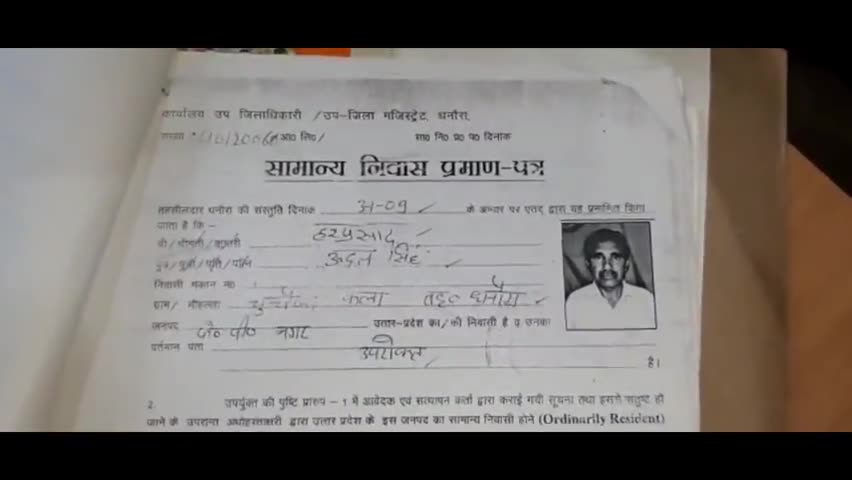 कार्यालय उप जिलाधिकारी / उप-जिला मजिस्ट्रेट, धनौरा,
आ० लि०/ सा० नि० प्र० प० दिनांक
सामान्य निवास प्रमाण-पत्र
तहसीलदार धनौरा की संस्तुति दिनांक के आधार पर एतद् द्वारा यह प्रमाणित किया
जाता है कि -
श्री / श्रीमती / कुमारी हरप्रसाद
पुत्र / पुत्री / पत्नि उदल सिंह
निवासी मकान न०
ग्राम / मौहल्ला कला तह० धनौरा
जनपद जे० पी० नगर उत्तर-प्रदेश का / की निवासी है व उनका
वर्तमान पता उपरोक्त है।
2. उपर्युक्त की पुष्टि प्रारुप - 1 में आवेदक एवं सत्यापन कर्ता द्वारा कराई गयी सूचना तथा इससे संतुष्ट हो
जाने के उपरान्त अधोहस्ताक्षरी द्वारा उत्तर प्रदेश के इस जनपद का सामान्य निवासी होने (Ordinarily Resident)